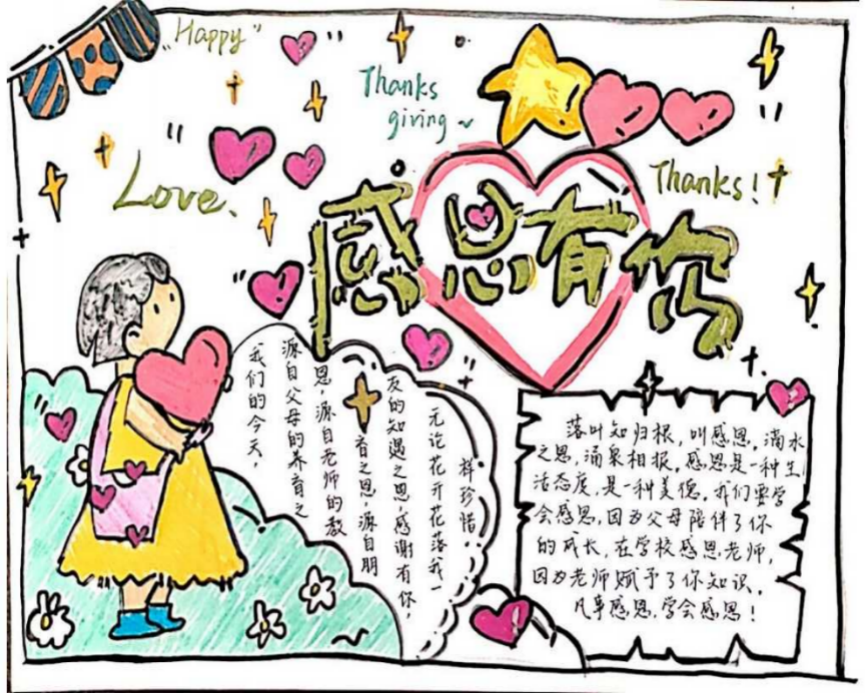 "Happy"
Thanks
giving~
Love.
Thanks!
感恩有你
我们的今天,
源自父母的养育之
恩,源自老师的教
育之恩,源自朋
友的知遇之恩,感谢有你,
无论花开花落我一
样珍惜.
落叶知归根,叫感恩,滴水
之恩,涌泉相报,感恩是一种生
活态度,是一种美德,我们要学
会感恩,因为父母陪伴了你
的成长,在学校感恩老师,
因为老师赋予了你知识,
凡事感恩,学会感恩!